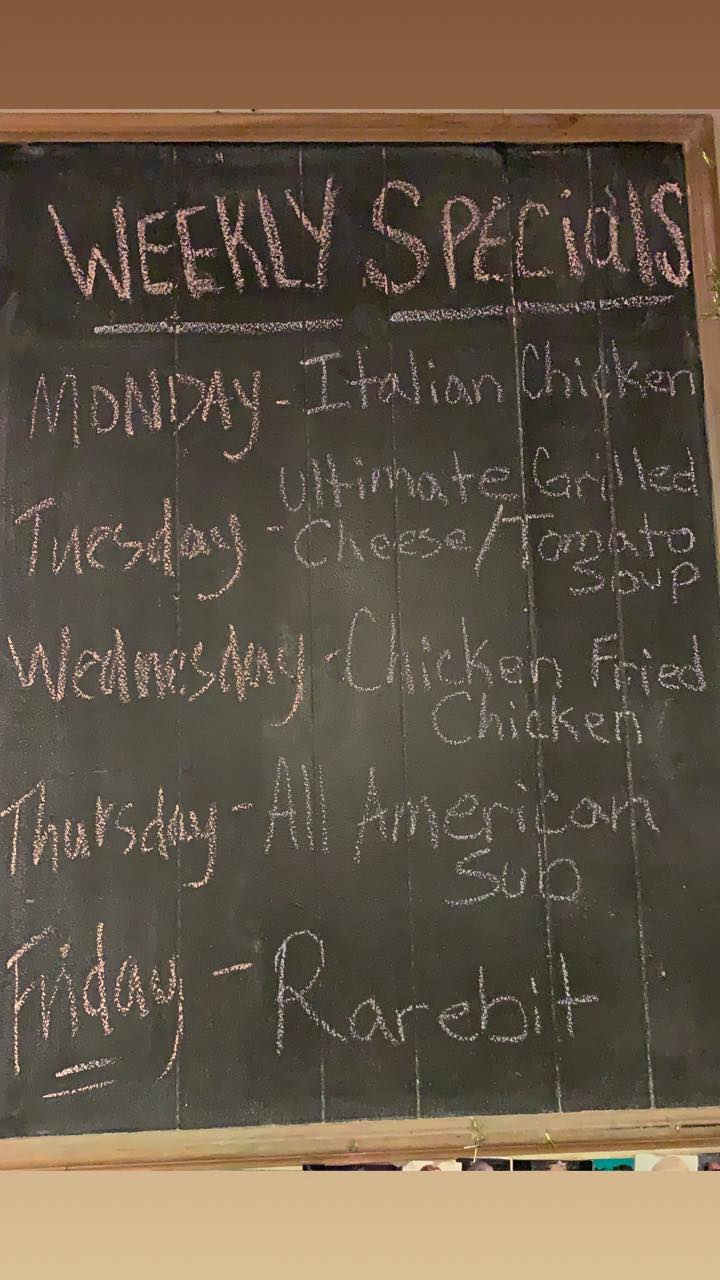 WEEKLY SPECialS
MONDAY - Italian Chicken
Ultimate Grilled
Tuesday - Cheese/Tomato
Soup
Wednesday - Chicken Fried
Chicken
Thursday - All American
Sub
Friday - Rarebit